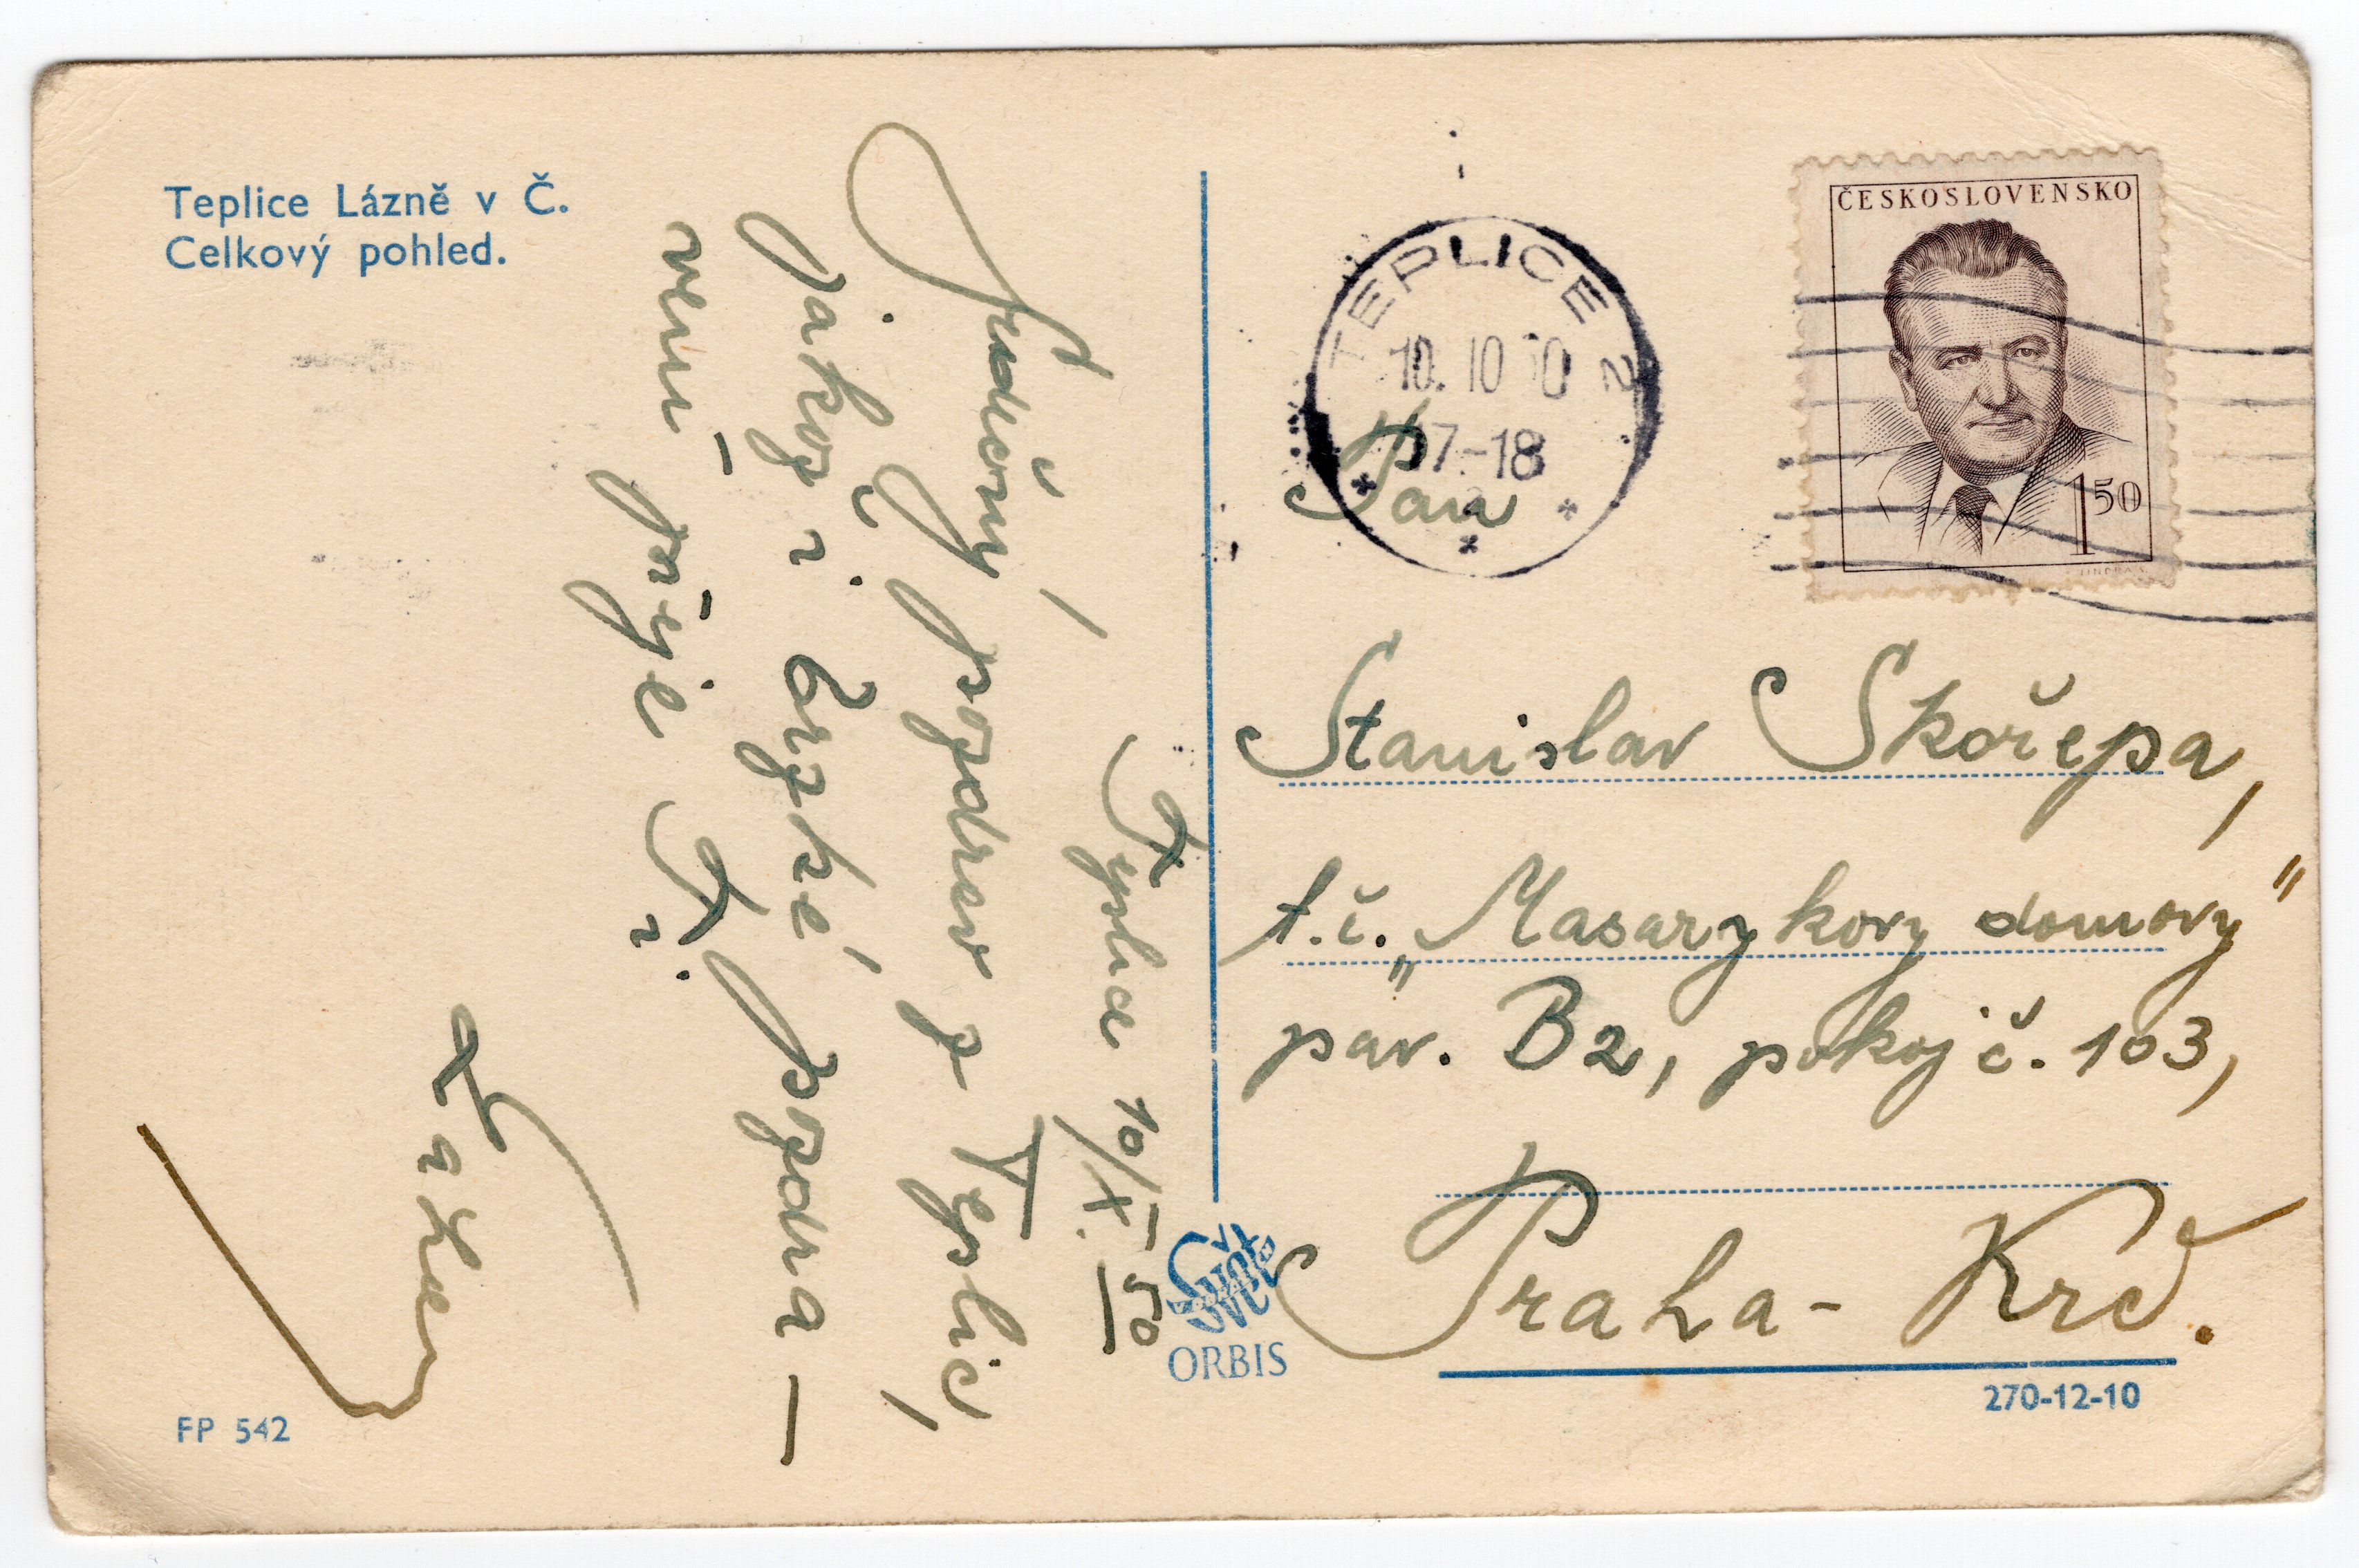 Teplice Lázně v Č.
Celkový pohled.
Teplice 10/X. 50
Srdečný pozdrav z Teplic,
jakož i brzké pozdra-
vení přeje Ti
FP 542
ORBIS
ČESKOSLOVENSKO
1 50
TEPLICE 2
10. 10 50
17-18
Pan
Stanislav Skořepa,
t.č. „Masarykovy domovy"
pav. B2, pokoj č. 103,
Praha - Krč.
270-12-10